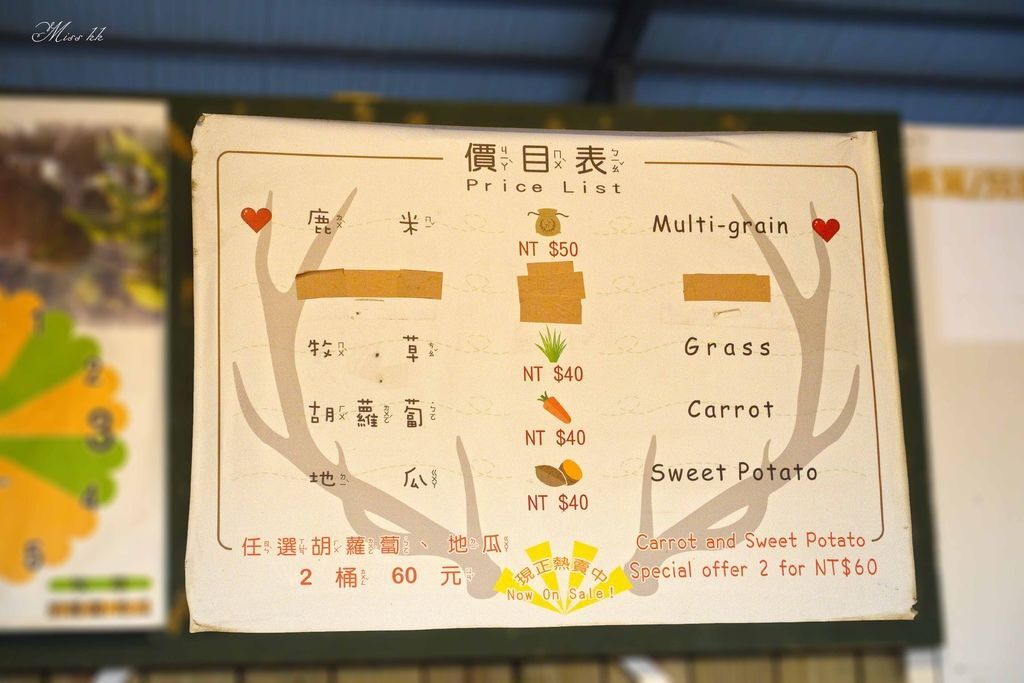 Miss kk
價目表
Price List
鹿米 Multi-grain
NT $50
牧草 Grass
NT $40
胡蘿蔔 Carrot
NT $40
地瓜 Sweet Potato
NT $40
任選胡蘿蔔、地瓜
2 桶 60 元
現正熱賣中
Now On Sale!
Carrot and Sweet Potato
Special offer 2 for NT$60
1
2
3
4
5